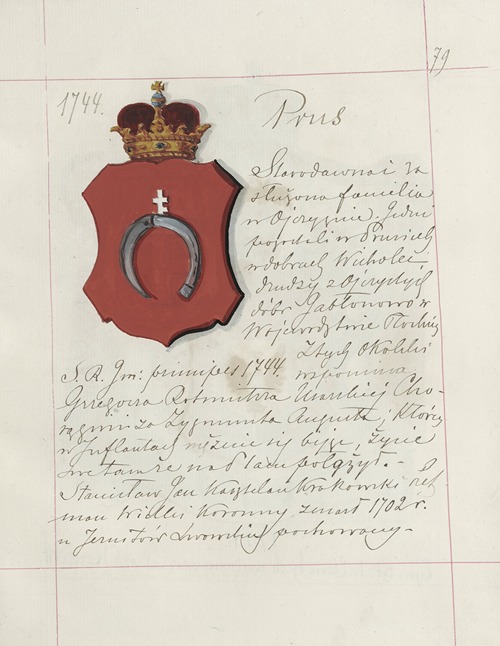 79
1744.
Prus
Starodawna i za
służona familia
w Ojczyznie. Jedni
w Prusiech
w dobrach
drudzy z Ojczystych
dóbr Jabłonowo w
Wojewodztwie Płockim
Z tych Okolski
S. R. Jm: principes 1744. wspomina
Grzegorza Rotmistrza Usarskiej Cho-
rągwi za Zygmunta Augusta, który
w Inflantach mężnie się bijąc, życie
swe tamże na placu położył.-
Stanisław Jan Kasztelan Krakowski Het
man Wielki Koronny zmarł 1702 r.
u Jezuitów Lwowskich pochowany.-